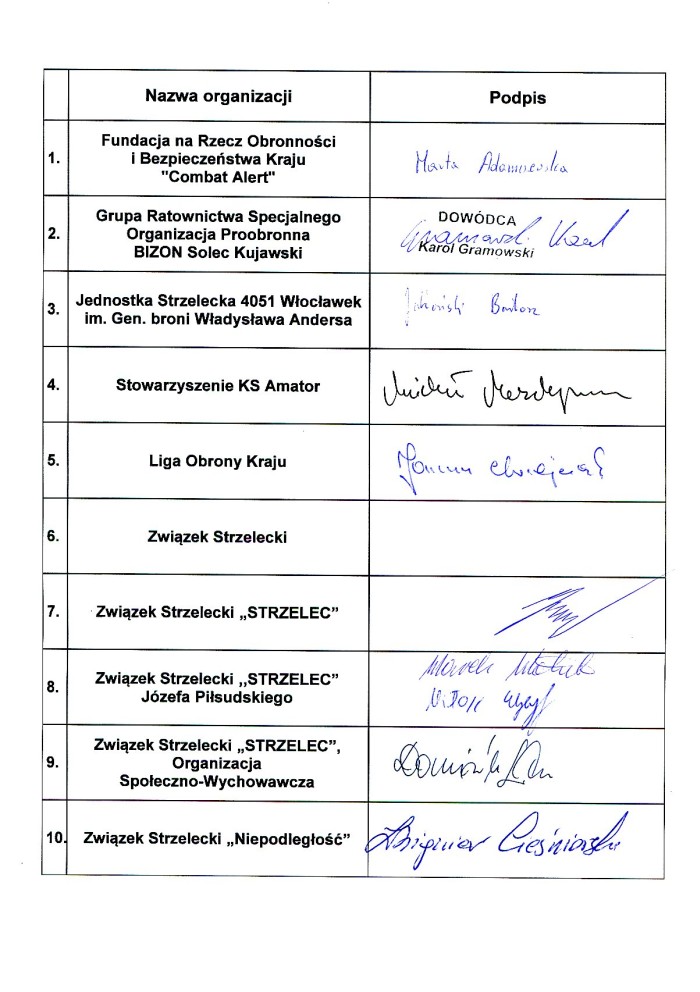 Nazwa organizacji
Podpis
1.
Fundacja na Rzecz Obronności
i Bezpieczeństwa Kraju
"Combat Alert"
Marta Adamczewska
2.
Grupa Ratownictwa Specjalnego
Organizacja Proobronna
BIZON Solec Kujawski
DOWÓDCA
Karol Gramowski
3.
Jednostka Strzelecka 4051 Włocławek
im. Gen. broni Władysława Andersa
Bartosz
4.
Stowarzyszenie KS Amator
Michał
5.
Liga Obrony Kraju
6.
Związek Strzelecki
7.
Związek Strzelecki „STRZELEC”
8.
Związek Strzelecki ,,STRZELEC”
Józefa Piłsudskiego
Marek
9.
Związek Strzelecki „STRZELEC”,
Organizacja
Społeczno-Wychowawcza
Dominik
10.
Związek Strzelecki „Niepodległość”
Zbigniew Cieśniarski